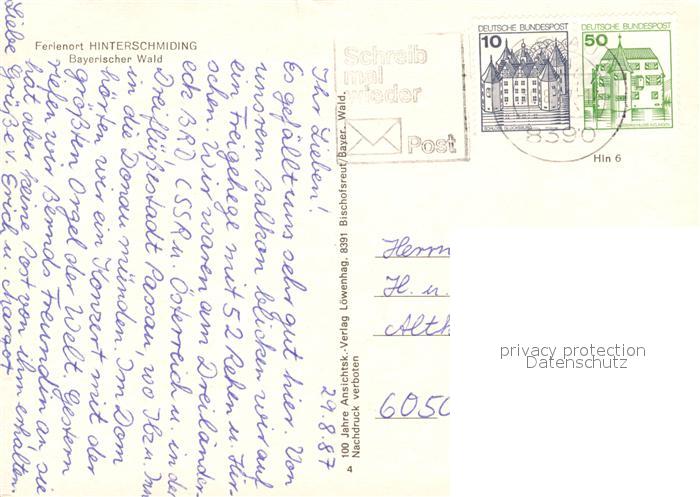 Ferienort HINTERSCHMIDING
Bayerischer Wald
29.8.87
Ihr Lieben!
Es gefällt uns sehr gut hier. Von
unsrem Balkon blicken wir auf
ein Freigehege mit 52 Rehen u. Hir-
schen. Wir waren am Dreiländer-
eck BRD, CSSR u. Österreich u. in der
Dreiflüßestadt Passau, wo Ilz u. Inn
in die Donau münden. Im Dom
hörten wir ein Konzert mit der
größten Orgel der Welt. Gestern
riefen wir Bernds Freundin an, sie
hat aber keine Post von ihm erhalten.
Liebe Grüße v. Erich u. Margot
100 Jahre Ansichtsk.-Verlag Löwenhag, 8391 Bischofsreut/Bayer. Wald.
Nachdruck verboten
4
Schreib
mal
wieder
Post
10
DEUTSCHE BUNDESPOST
SCHLOSS GLÜCKSBURG
50
DEUTSCHE BUNDESPOST
8390
Hin 6
Herrn
H. u.
Alth
6050
privacy protection
Datenschutz